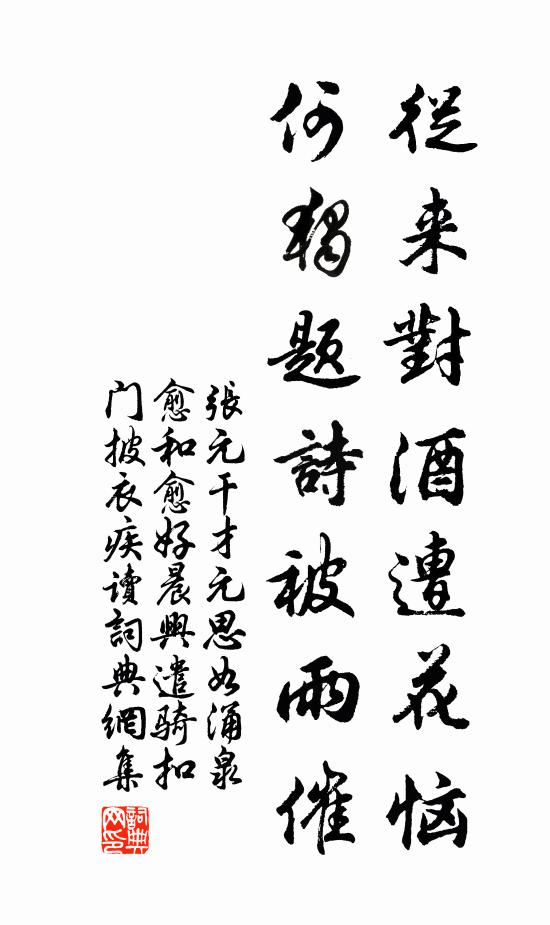 從来對酒遭花恼
何獨题詩被雨催
張元干才元思如涌泉
愈和愈好晨興遣骑扣
门披衣疾读詞典網集
詞典
网印